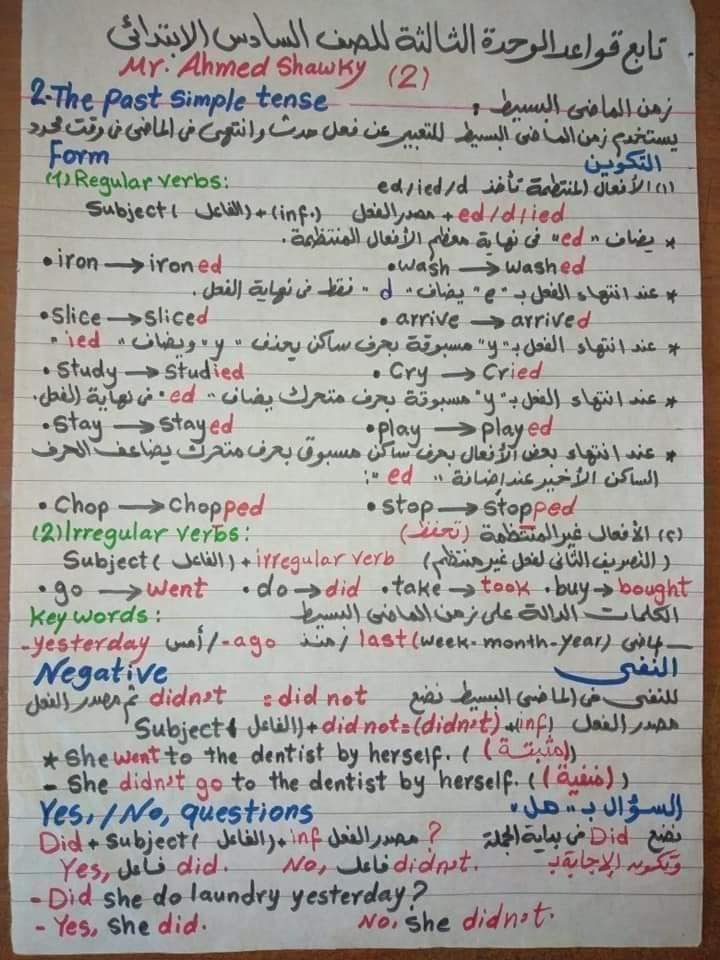 تابع قواعد الوحدة الثالثة للصف السادس الابتدائى
Mr. Ahmed Shawky (2)
2-The Past Simple tense زمن الماضى البسيط :
يستخدم زمن الماضى البسيط للتعبير عن فعل حدث وانتهى فى الماضى فى وقت محدد
Form التكوين
(1) Regular verbs: (١) الأفعال المنتظمة تأخذ ed/ied/d
Subject (الفاعل) + (inf.) مصدر الفعل + ed/d/ied
* يضاف "ed" فى نهاية معظم الأفعال المنتظمة.
• iron → ironed • wash → washed
* عند انتهاء الفعل بـ "e" يضاف "d" فقط فى نهاية الفعل.
• Slice → sliced • arrive → arrived
* عند انتهاء الفعل بـ "y" مسبوقة بحرف ساكن يحذف "y" ويضاف "ied"
• Study → studied • Cry → Cried
* عند انتهاء الفعل بـ "y" مسبوقة بحرف متحرك يضاف "ed" فى نهاية الفعل.
• Stay → stayed • play → played
* عند انتهاء بعض الأفعال بحرف ساكن مسبوق بحرف متحرك يضاعف الحرف
الساكن الأخير عند إضافة "ed":
• Chop → Chopped • stop → stopped
(2) Irregular verbs: (٢) الأفعال غير المنتظمة (تحفظ)
Subject (الفاعل) + irregular verb (التصريف الثانى لفعل غير منتظم)
• go → went • do → did • take → took • buy → bought
Key words: الكلمات الدالة على زمن الماضى البسيط
- yesterday أمس / - ago منذ / last (week - month - year) ماضى
Negative النفى
للنفى فى الماضى البسيط نضع didn't = did not ثم مصدر الفعل
Subject (الفاعل) + did not = (didn't) + (inf) مصدر الفعل
* She went to the dentist by herself. (مثبتة)
- She didn't go to the dentist by herself. (منفية)
Yes,/No, questions السؤال بـ "هل"
Did + Subject (الفاعل) + inf مصدر الفعل ? نضع Did فى بداية الجملة
Yes, فاعل did. No, فاعل didn't. وتكون الإجابة بـ
- Did she do laundry yesterday?
- Yes, she did. No, she didn't.